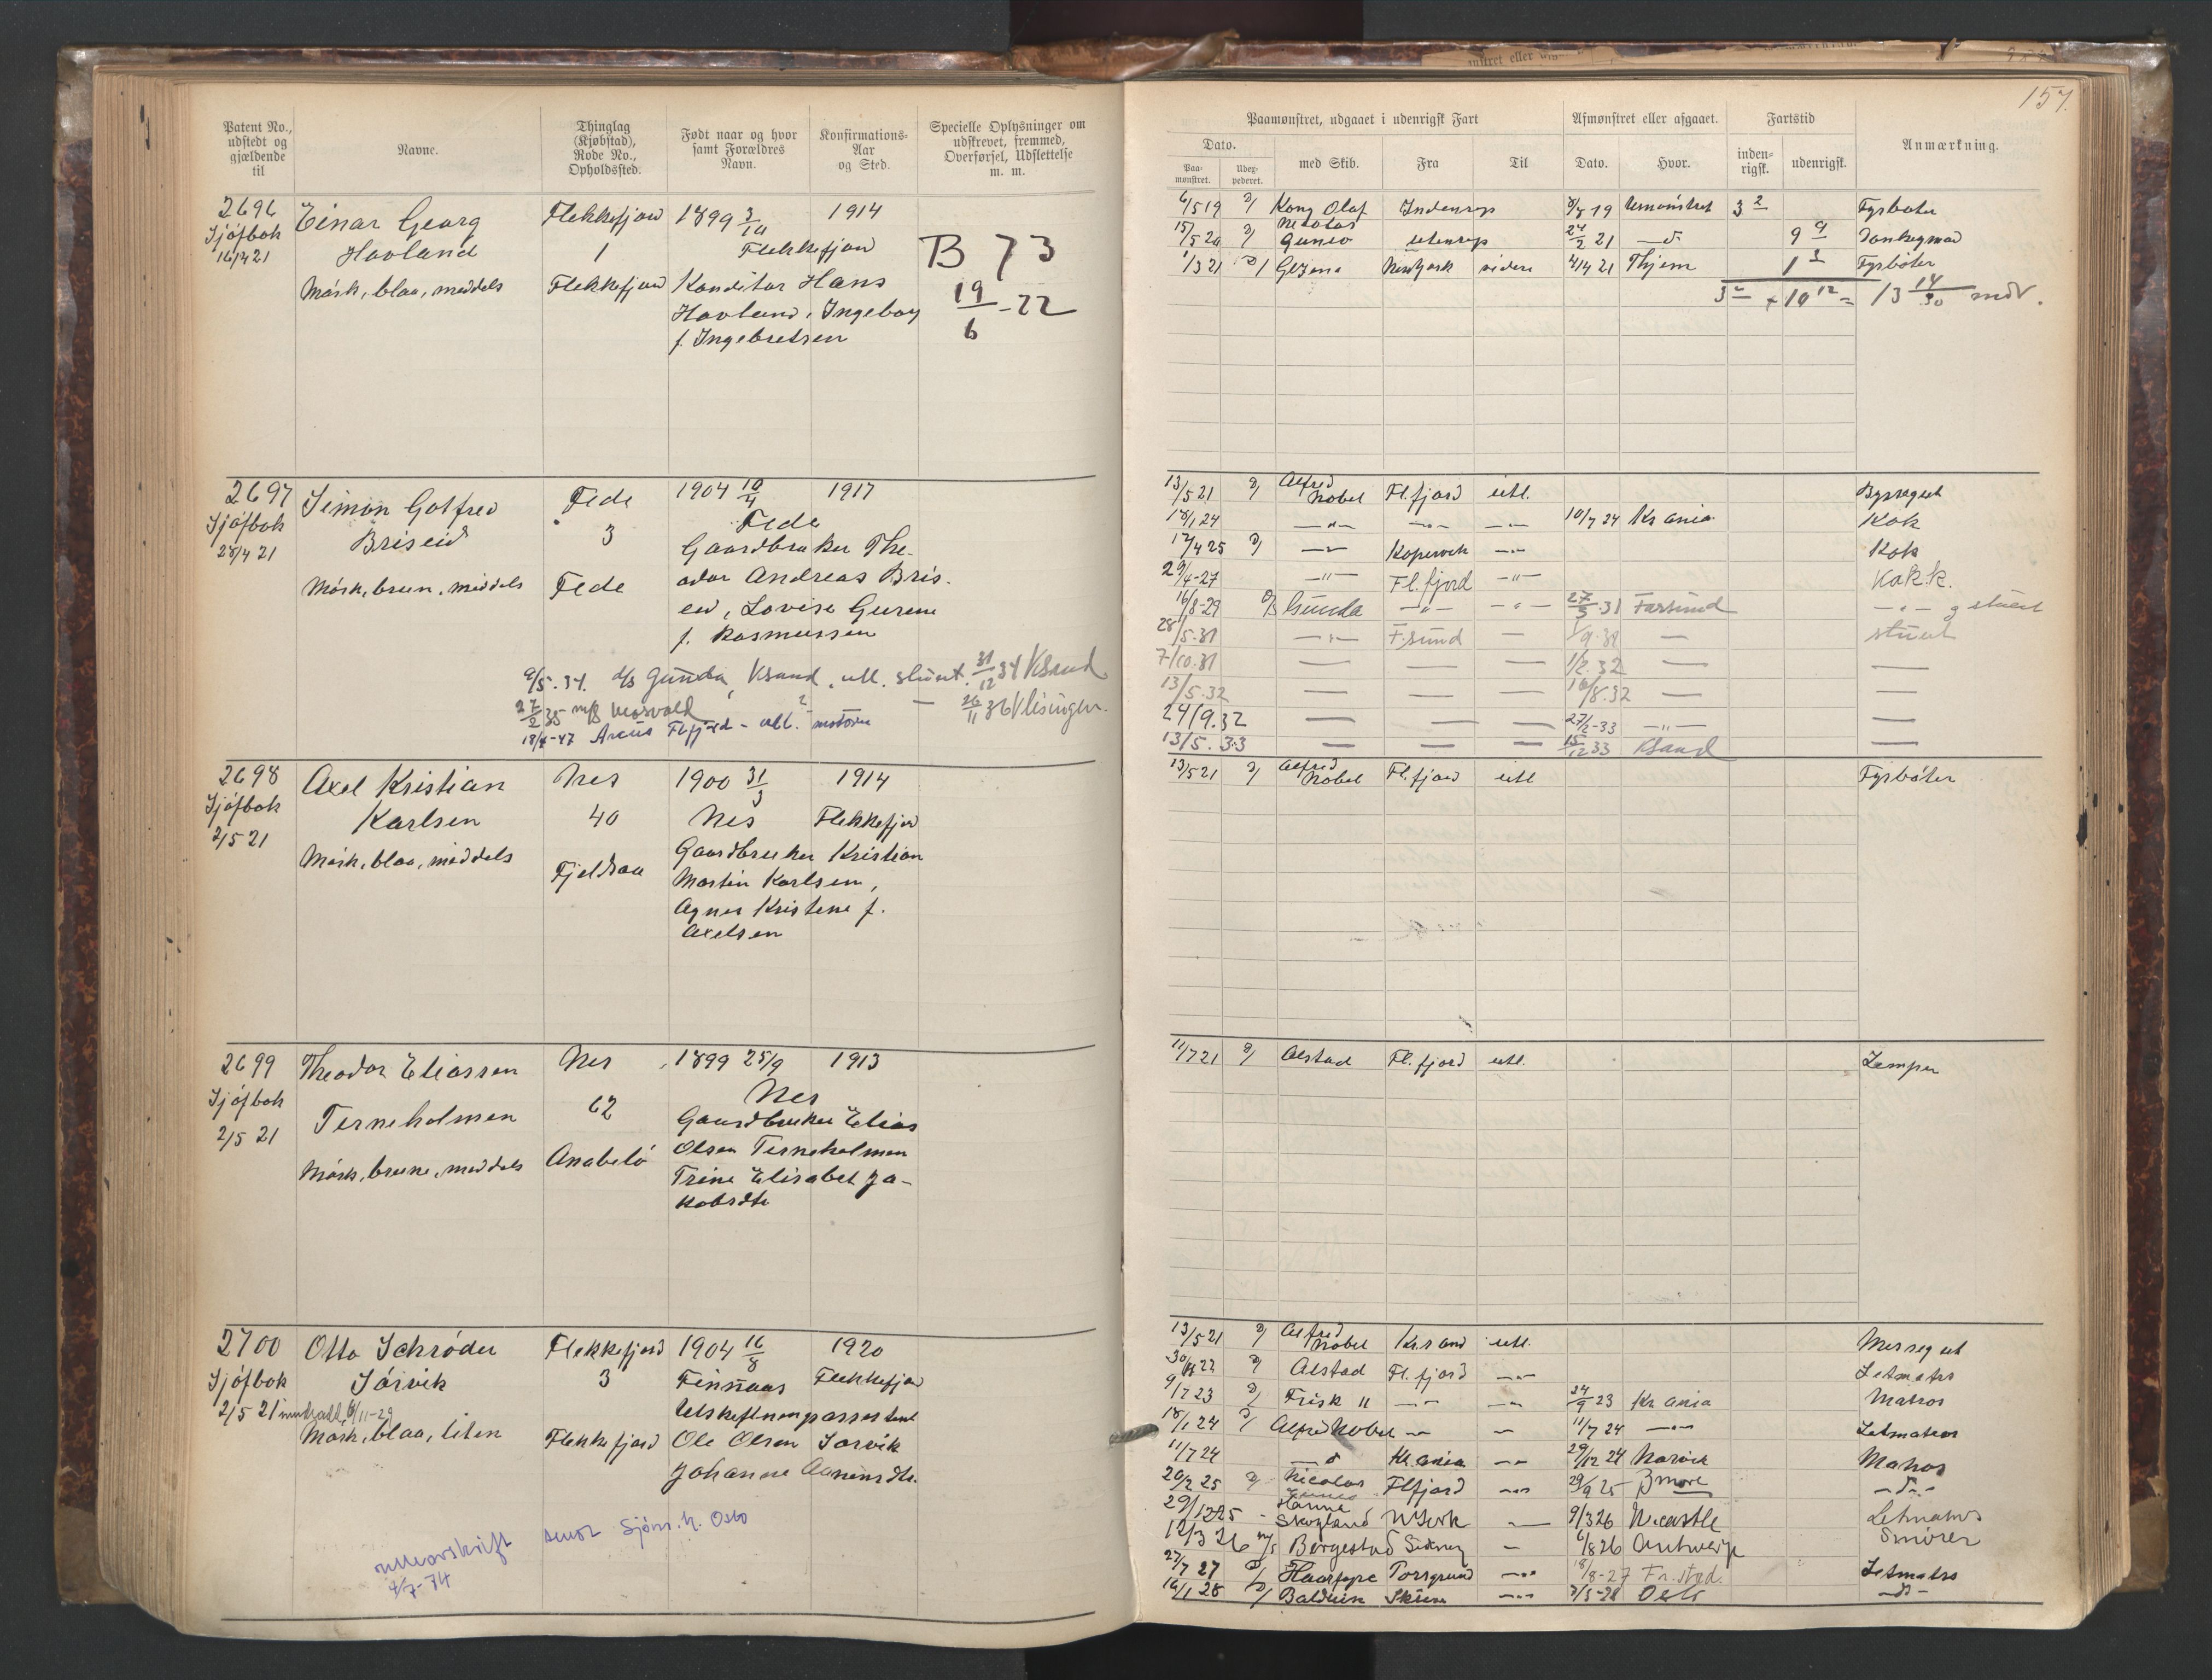 Patent No., udstedt og gjældende til
Navne.
Thinglag (Kjøbstad), Rode No., Opholdssted.
Født naar og hvor samt Forældres Navn.
Konfirmations-Aar og Sted.
Specielle Oplysninger om udskrevet, fremmed, Overførsel, Udslettelse m. m.
2696
Sjöfbok
16/4 21
Einar Georg
Havland
Mörk, blaa, middels
Flekkefjord
1
Flekkefjord
1899 3/10
1914
Flekkefjord
Konditor Hans
Havland, Ingeborg
f. Ingebretsen
B 73
19/6-22
2697
Sjöfbok
28/4 21
Simon Gotfred
Briseid
Mörk, brun, middels
Fede
3
Fede
1904 10/4
1917
Fede
Gaardbruker The-
odor Andreas Bris-
eid, Lovise Gurine
f. Rasmussen
9/5.34. d/s Gunda, Ksand, utl. stuert. 31/12 34 Ksand
27/2 35 m/s Mosvold — 26/11 36 Vlisingen.
18/4-47 Arcus Flfjord - utl.
2698
Sjöfbok
2/5 21
Axel Kristian
Karlsen
Mörk, blaa, middels
Nes
40
Fjeldsaa
1900 31/3
1914
Nes
Flekkefjord
Gaardbruker Kristian
Martin Karlsen,
Agnes Kristene f.
Axelsen
2699
Sjöfbok
2/5 21
Theodor Eliassen
Terneholmen
Mörk, brune, middels
Nes
62
Anabelö
1899 25/9
1913
Nes
Gaardbruker Elias
Olsen Terneholmen
Trine Elisabet Ja-
kobsdtr
2700
Sjöfbok
2/5 21
Otto Schrøder
Sörvik
Mörk, blaa, liten
Flekkefjord
3
Flekkefjord
1904 16/8
1920
Finnaas
Flekkefjord
Utskiftningsassistent
Ole Olsen Sörvik
Johanne Aanensdtr.
rulleavskrift sendt Sjöm. k. Oslo
4/7-74
157.
Paamønstret, udgaaet i udenrigsk Fart
Afmønstret eller afgaaet.
Fartstid
Anmærkning.
Dato.
Paa-mønstret.
Udex-pederet.
med Skib.
Fra
Til
Dato.
Hvor.
inden-rigsk.
udenrigsk.
6/5 19 D/ Kong Olaf Indenrigs 8/8 19 Usmönstret 3 2 Fyrböter
15/5 20 D/ Nicolas Cuneo utenrigs 24/2 21 —d— 9 9 Donkeymand
1/3 21 D/ NewYork videre 4/4 21 Hjem 1 3 Fyrböter
3 2 + 10 12 = 13 14/30 mdr.
13/5 21 D/ Alfred Nobel Fl.fjord utl. Byssegut
18/1 24 —"— —"— —"— 10/7 24 Kr ania Kok
17/4 25 D/ —"— Kopervik —"— Kok
29/4-27 —"— Fl.fjord —"— Kokk.
16/8-29 D/S Gunda —"— —"— 27/3.31 Farsund —"— g stuert
28/5.31 —"— F.sund — — stuert
7/10.31 — — — 1/2.32 — —
13/5.32 — — — 10/8.32 — —
24/9.32 — — — 27/2-33 —"— —
13/5.33 — — — 15/12 33 Ksand —
13/5 21 D/ Alfred Nobel Fl.fjord utl Fyrböter
11/7 21 D/ Alstad Fl.fjord utl. Lemper
13/5 21 D/ Alfred Nobel Kr.sand utl. Messegut
30/8 22 D/ Alstad Fl.fjord —"— Letmatros
9/7 23 D/ Frisk II —"— —"— 24/9 23 Kr ania Matros
18/1 24 D/ Alfred Nobel —"— — 11/7 24 —"— Letmatros
11/7 24 —d Kr ania —"— 29/12 24 Narvik Matros
20/2 25 D/ Nicolas Cuneo Flfjord —"— 29/9 25 Bmore —d—
29/12 25 - Hanna Skogland N York — 9/3 26 Ncastle Letmatros
12/3 26 m/s Borgestad Sidney — 6/8 26 Antwerp Smörer
27/7 27 D/ Haarfagre Porsgrund —"— 18/8-27 Fr.stad. Letmatros
16/1 28 D/ Balduin Skien —"— 3/5-28 Oslo —d—